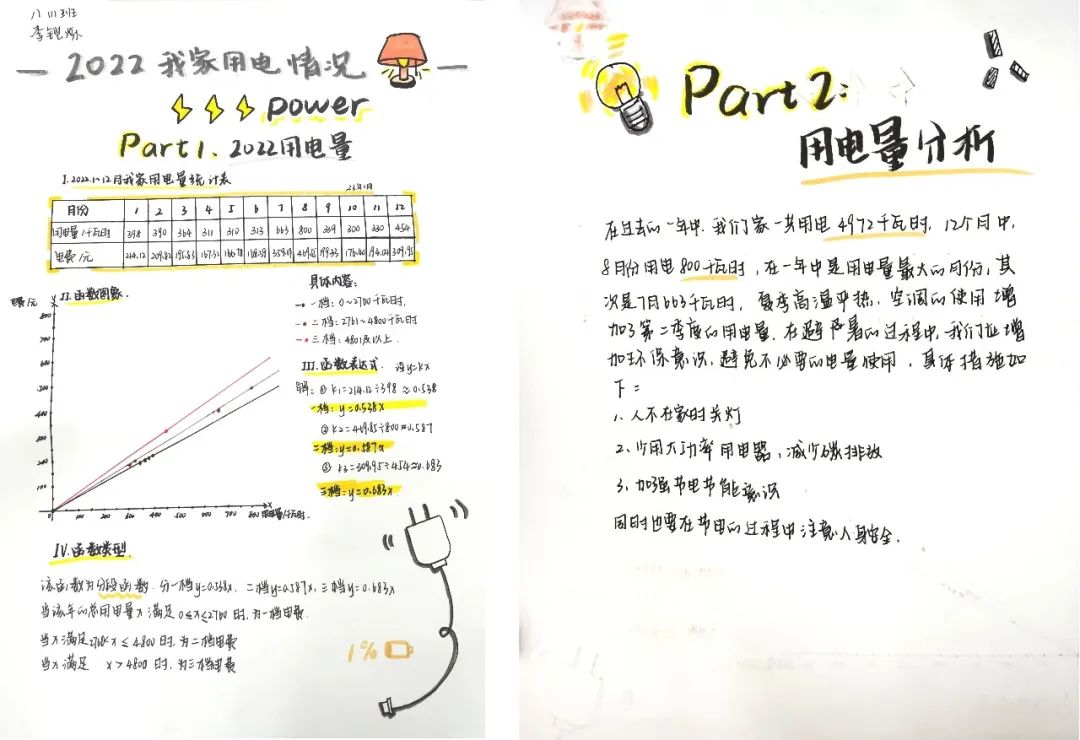 八(1)班
2022 我家用电情况
power
Part1. 2022用电量
I. 2022.1~12月我家用电量统计表
月份 1 2 3 4 5 6 7 8 9 10 11 12
用电量/千瓦时 398 390 364 311 310 313 663 800 339 300 330 454
电费/元 214.12
电费/元 y
II. 函数图象
800
700
600
500
400
300
200
100
0
100 200 300 400 500 600 700 800 用电量/千瓦时
x
具体内容:
一档: 0~2760千瓦时
二档: 2761~4800千瓦时
三档: 4801及以上
III. 函数表达式. 设y=kx
解: ① k1=214.12÷398≈0.538
一档: y=0.538x
② k2=469.85÷800≈0.587
二档: y=0.587x
③ k3=309.95÷454≈0.683
三档: y=0.683x
IV. 函数类型.
该函数为分段函数. 分一档y=0.538x, 二档y=0.587x, 三档y=0.683x
当该年的总用电量x满足 0≤x≤2760 时, 为一档电费.
当x满足2760<x≤4800时, 为二档电费
当x满足 x>4800 时, 为三档电费
1%
Part 2:
用电量分析
在过去的一年中, 我们家一共用电 4972千瓦时, 12个月中,
8月份用电800千瓦时, 在一年中是用电量最大的月份, 其
次是7月663千瓦时, 夏季高温炎热, 空调的使用 增
加了第二季度的用电量. 在避暑的过程中, 我们应增
加环保意识, 避免不必要的电量使用, 具体措施如
下:
1. 人不在家时关灯
2. 少用大功率用电器, 减少碳排放
3. 加强节电节能意识
同时也要在节电的过程中注意人身安全.